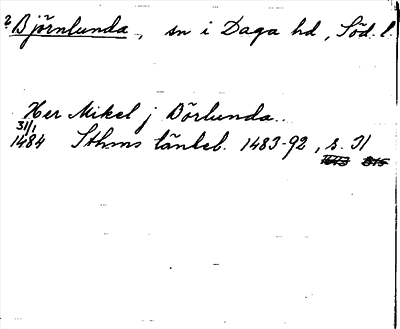 ? Björnlunda, sn i Daga hd, Söd. l.
Her Mikel j Börlunda..
31/1
1484 Sthms tänkeb. 1483-92, s. 31